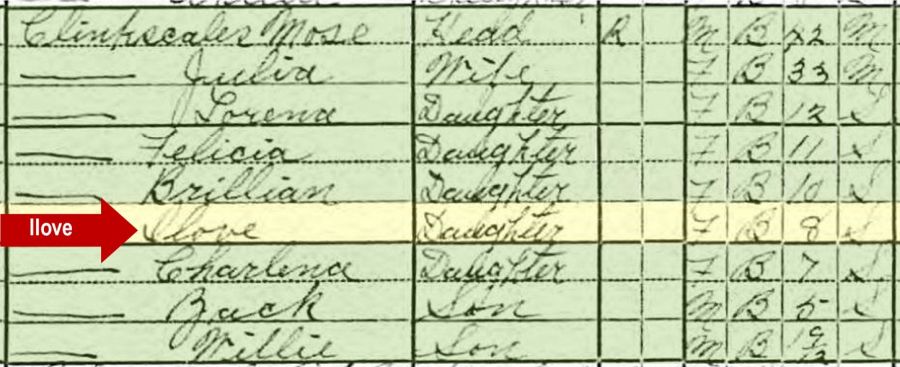 Clinkscales Mose Head R M B M
Julia Wife F B 33 M
Lorena Daughter F B 12 S
Felicia Daughter F B 11 S
Brillian Daughter F B 10 S
Ilove Ilove Daughter F B 8 S
Charlena Daughter F B 7 S
Zack Son M B 5 S
Willie Son M B S